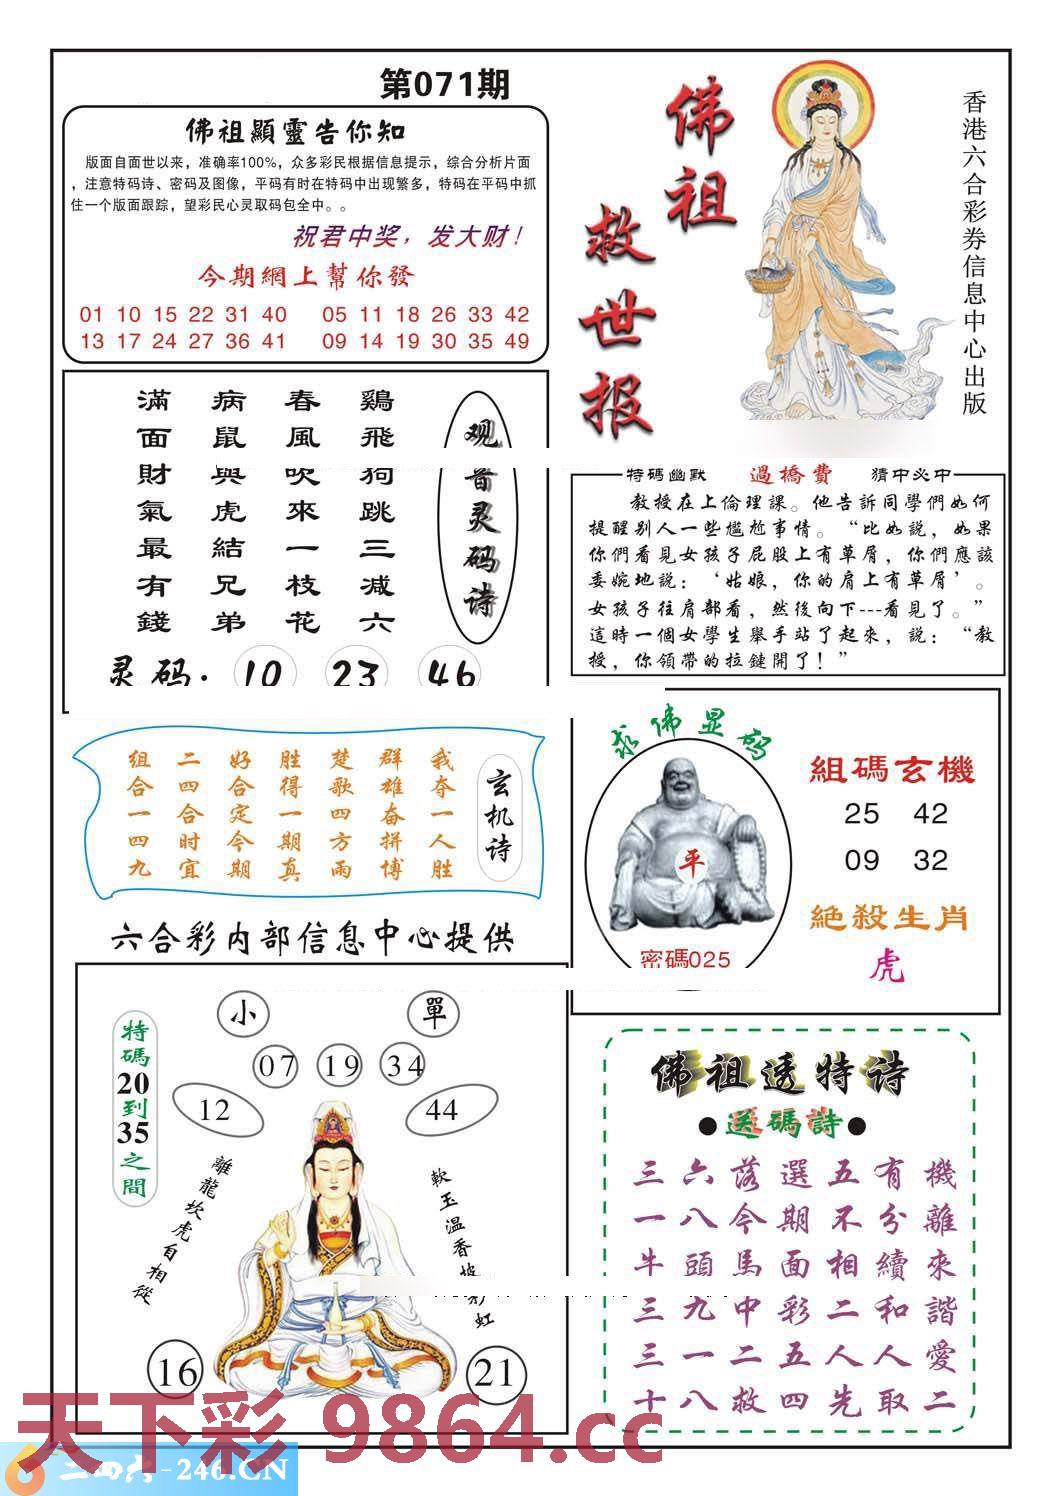 第071期
佛祖顯靈告你知
版面自面世以来，准确率100%，众多彩民根据信息提示，综合分析片面
，注意特码诗、密码及图像，平码有时在特码中出现繁多，特码在平码中抓
住一个版面跟踪，望彩民心灵取码包全中。。
祝君中奖，发大财！
今期網上幫你發
01 10 15 22 31 40 05 11 18 26 33 42
13 17 24 27 36 41 09 14 19 30 35 49
佛祖
救世报
香港六合彩券信息中心出版
观音灵码诗
鷄飛狗跳三减六
春風吹來一枝花
病鼠與虎結兄弟
滿面財氣最有錢
灵码：10 23 46
特碼幽默 過橋費 猜中必中
教授在上倫理課。他告訴同學們如何
提醒别人一些尴尬事情。“比如説，如果
你們看見女孩子屁股上有草屑，你們應該
委婉地説：‘姑娘，你的肩上有草屑’。
女孩子往肩部看，然後向下---看見了。”
這時一個女學生舉手站了起來，説：“教
授，你領帶的拉鏈開了！”
玄机诗
我夺一人胜
群雄奋拼博
楚歌四方雨
胜得一期真
好合定今期
二四合时宜
组合一四九
求佛显码
平
密碼025
組碼玄機
25 42
09 32
絕殺生肖
虎
六合彩内部信息中心提供
特碼20到35之間
小 單
07 19 34
12 44
離龍坎虎自相從
軟玉温香披彩虹
16 21
佛祖透特诗
●送碼詩●
三六落選五有機
一八今期不分離
牛頭馬面相續來
三九中彩二和諧
三一二五人人愛
十八救四先取二
天下彩 9864.cc
二四六-246.CN